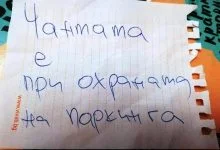 Чантата
е
при охраната
на паркинга